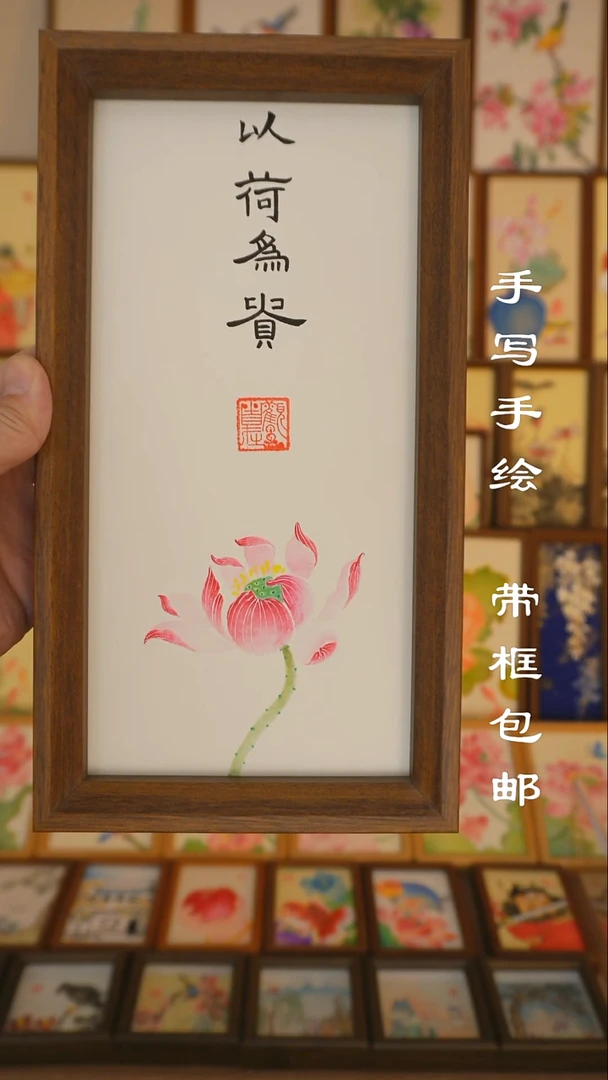 以荷為貴
手写手绘 带框包邮